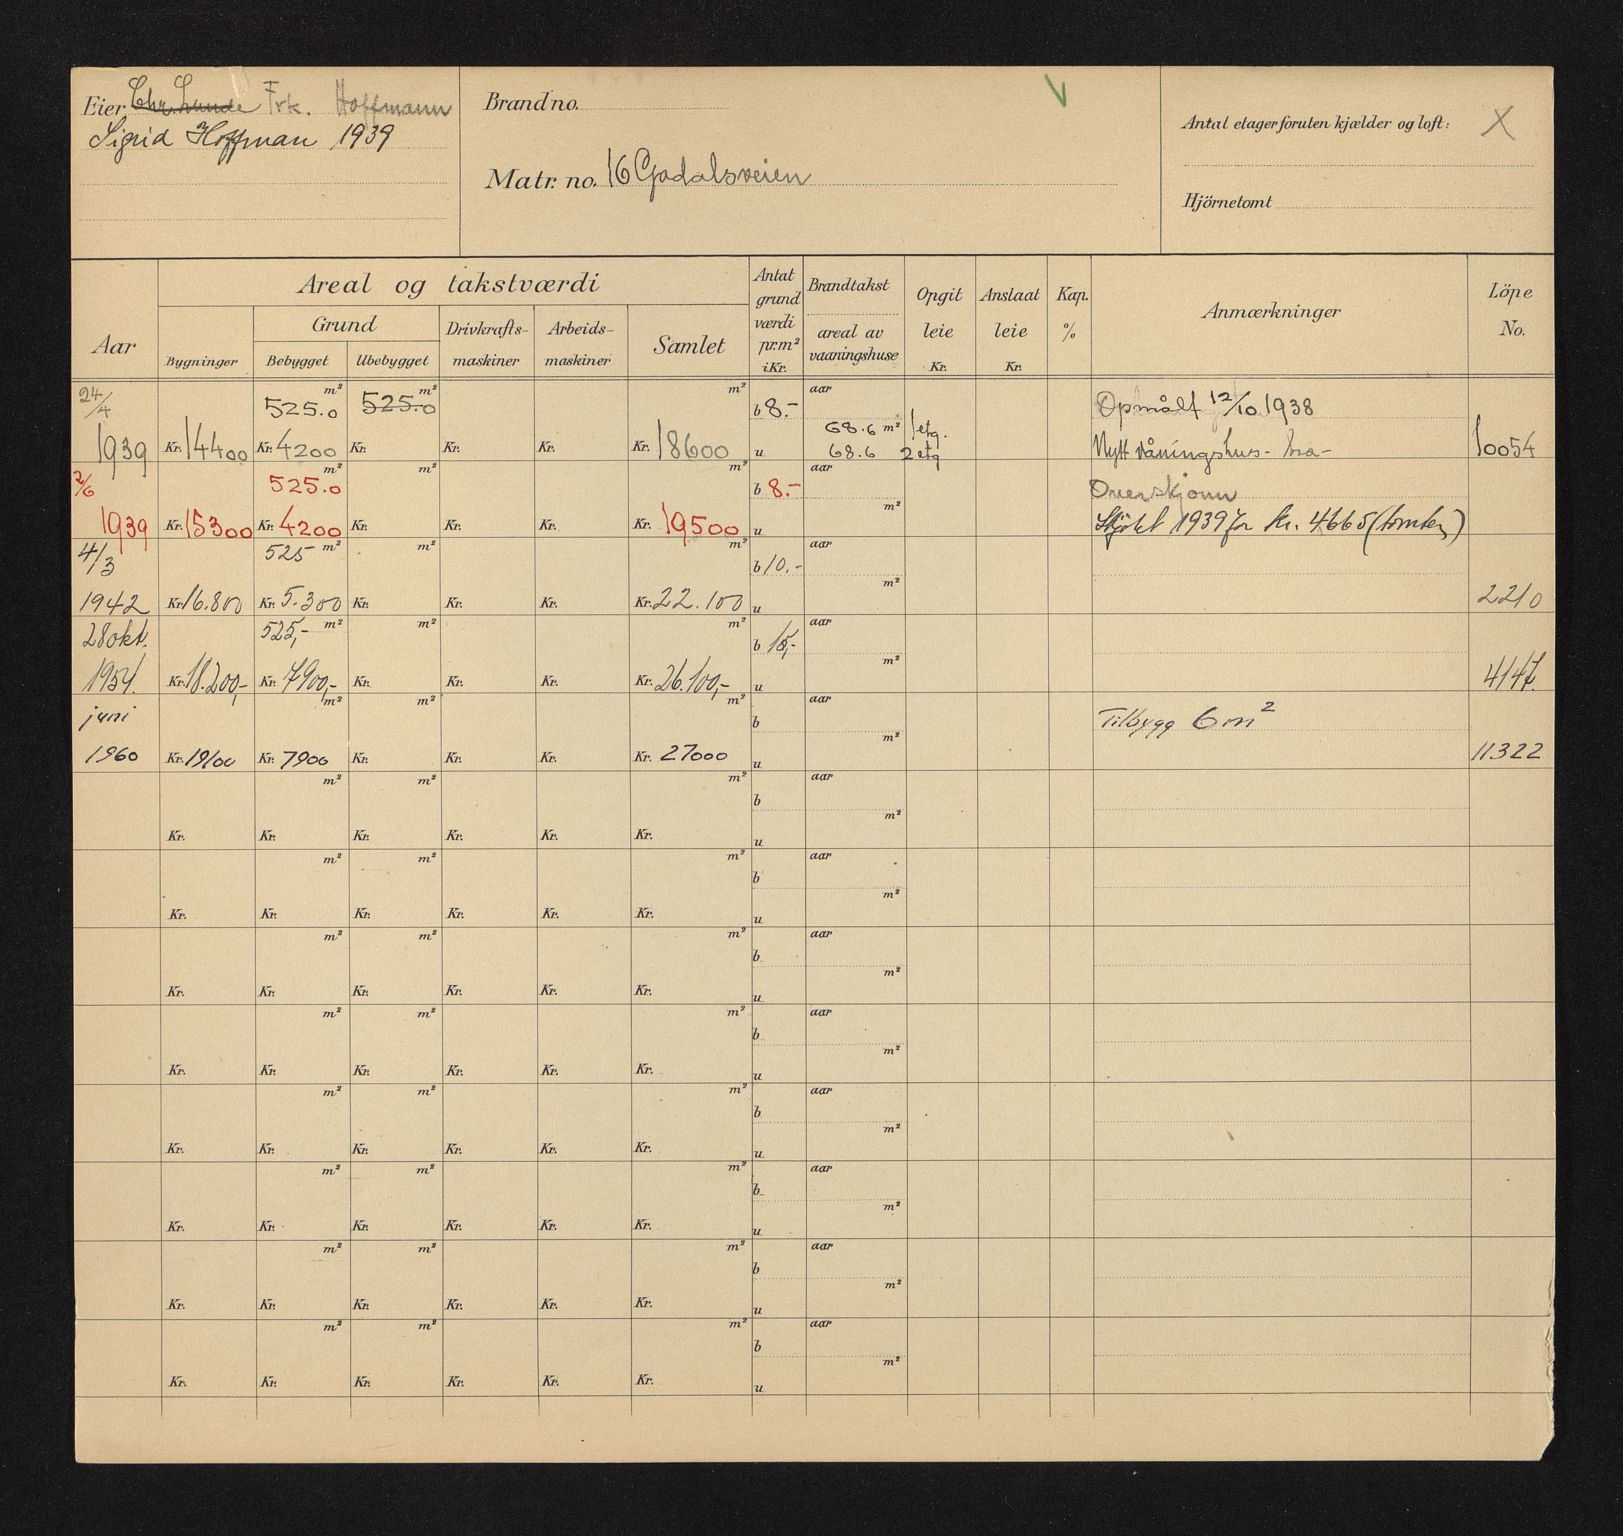 Eier Chr. Lunde Frk. Hoffmann
Sigrid Hoffman 1939
Brand no.
Matr. no. 16 Gjødalsveien
Antal etager foruten kjælder og loft: X
Hjörnetomt
Aar
Areal og takstværdi
Grund
Bygninger
Bebygget
Ubebygget
Drivkrafts-maskiner
Arbeids-maskiner
Samlet
Antat grund værdi pr. m² i Kr.
Brandtakst
areal av vaaningshuse
Opgit leie Kr.
Anslaat leie Kr.
Kap. %
Anmærkninger
Löpe No.
24/4 m² 525.0 m² 525.0 m² b 8.- aar 68.6 m² 1 etg. Opmålt 12/10 1938
1939 Kr. 14400 Kr. 4200 Kr. Kr. Kr. Kr. 18600 u 68.6 2 etg Nytt våningshus - bra - 10054
2/6 m² 525.0 m² m² b 8.- aar m² Overskjønn
1939 Kr. 15300 Kr. 4200 Kr. Kr. Kr. Kr. 19500 u Skjøtet 1939 for kr. 4665 (tomten)
4/3 525 m² m² m² b 10.- aar m²
1942 Kr. 16.800 Kr. 5.300 Kr. Kr. Kr. Kr. 22.100 u 2210
28 okt. 525,- m² m² m² b 15,- aar m²
1954. Kr. 18.200,- Kr. 7900,- Kr. Kr. Kr. Kr. 26.100,- u 4147.
juni m² m² m² b aar m² Tilbygg 6 m²
1960 Kr. 19100 Kr. 7900 Kr. Kr. Kr. Kr. 27000 u 11322
m² m² m² b aar m²
Kr. Kr. Kr. Kr. Kr. Kr. u
m² m² m² b aar m²
Kr. Kr. Kr. Kr. Kr. Kr. u
m² m² m² b aar m²
Kr. Kr. Kr. Kr. Kr. Kr. u
m² m² m² b aar m²
Kr. Kr. Kr. Kr. Kr. Kr. u
m² m² m² b aar m²
Kr. Kr. Kr. Kr. Kr. Kr. u
m² m² m² b aar m²
Kr. Kr. Kr. Kr. Kr. Kr. u
m² m² m² b aar m²
Kr. Kr. Kr. Kr. Kr. Kr. u
m² m² m² b aar m²
Kr. Kr. Kr. Kr. Kr. Kr. u